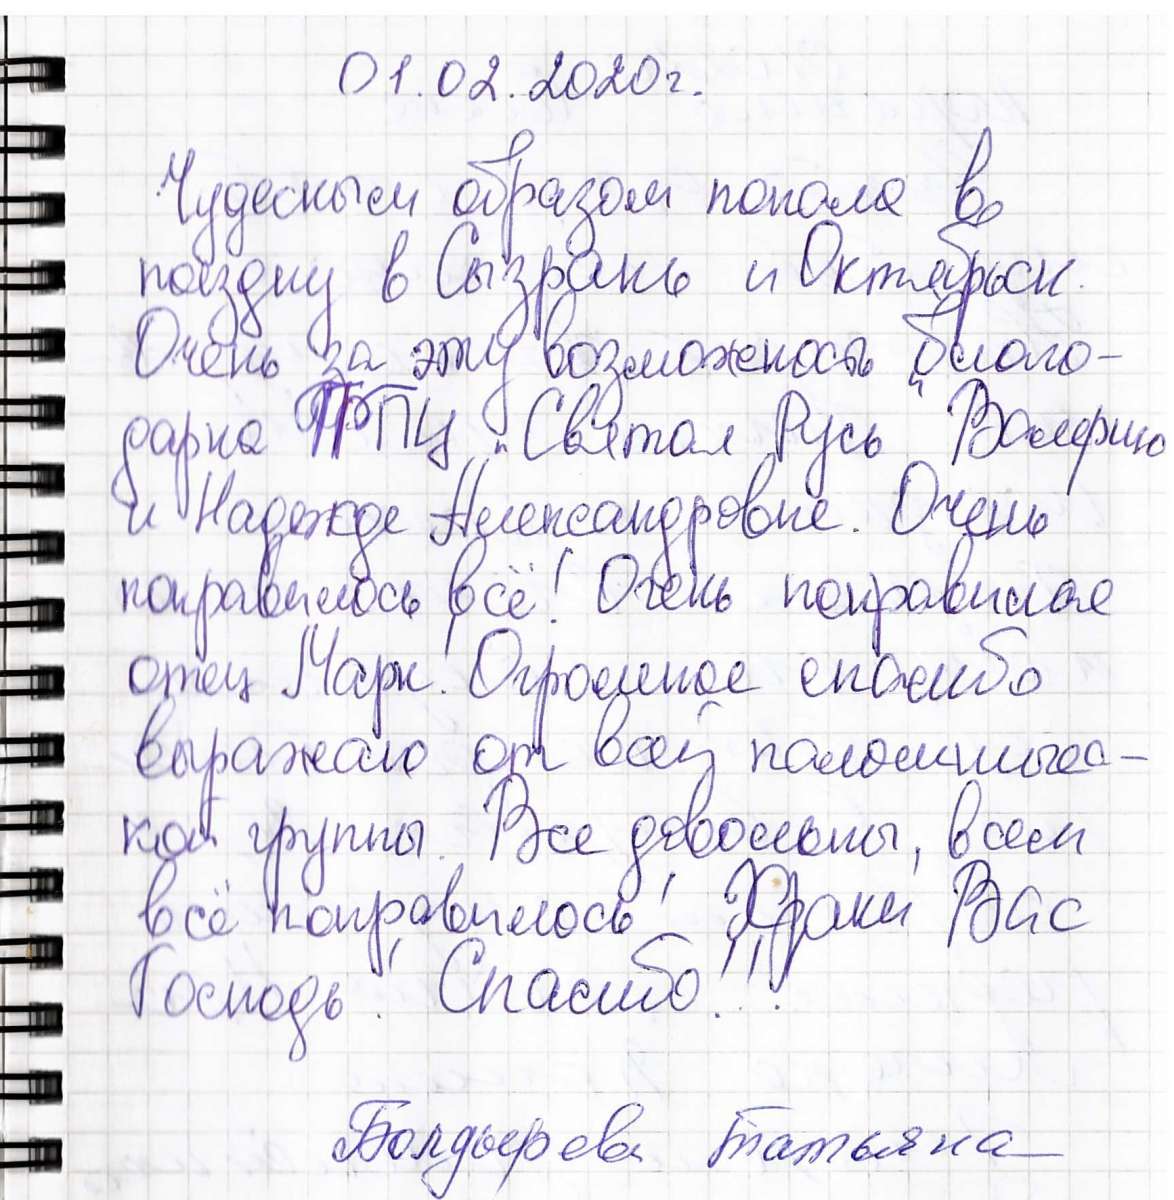 01.02.2020г.
Чудесным образом попала в
поездку в Сызрань и Октябрьск.
Очень за эту возможность благо-
дарна ППЦ „Святая Русь" Валерию
и Надежде Александровне. Очень
понравилось всё! Очень понравился
отец Марк! Огромное спасибо
выражаю от всей паломничес-
кой группы. Все довольны, всем
всё понравилось! Храни Вас
Господь! Спасибо!!!
Болдырева Татьяна